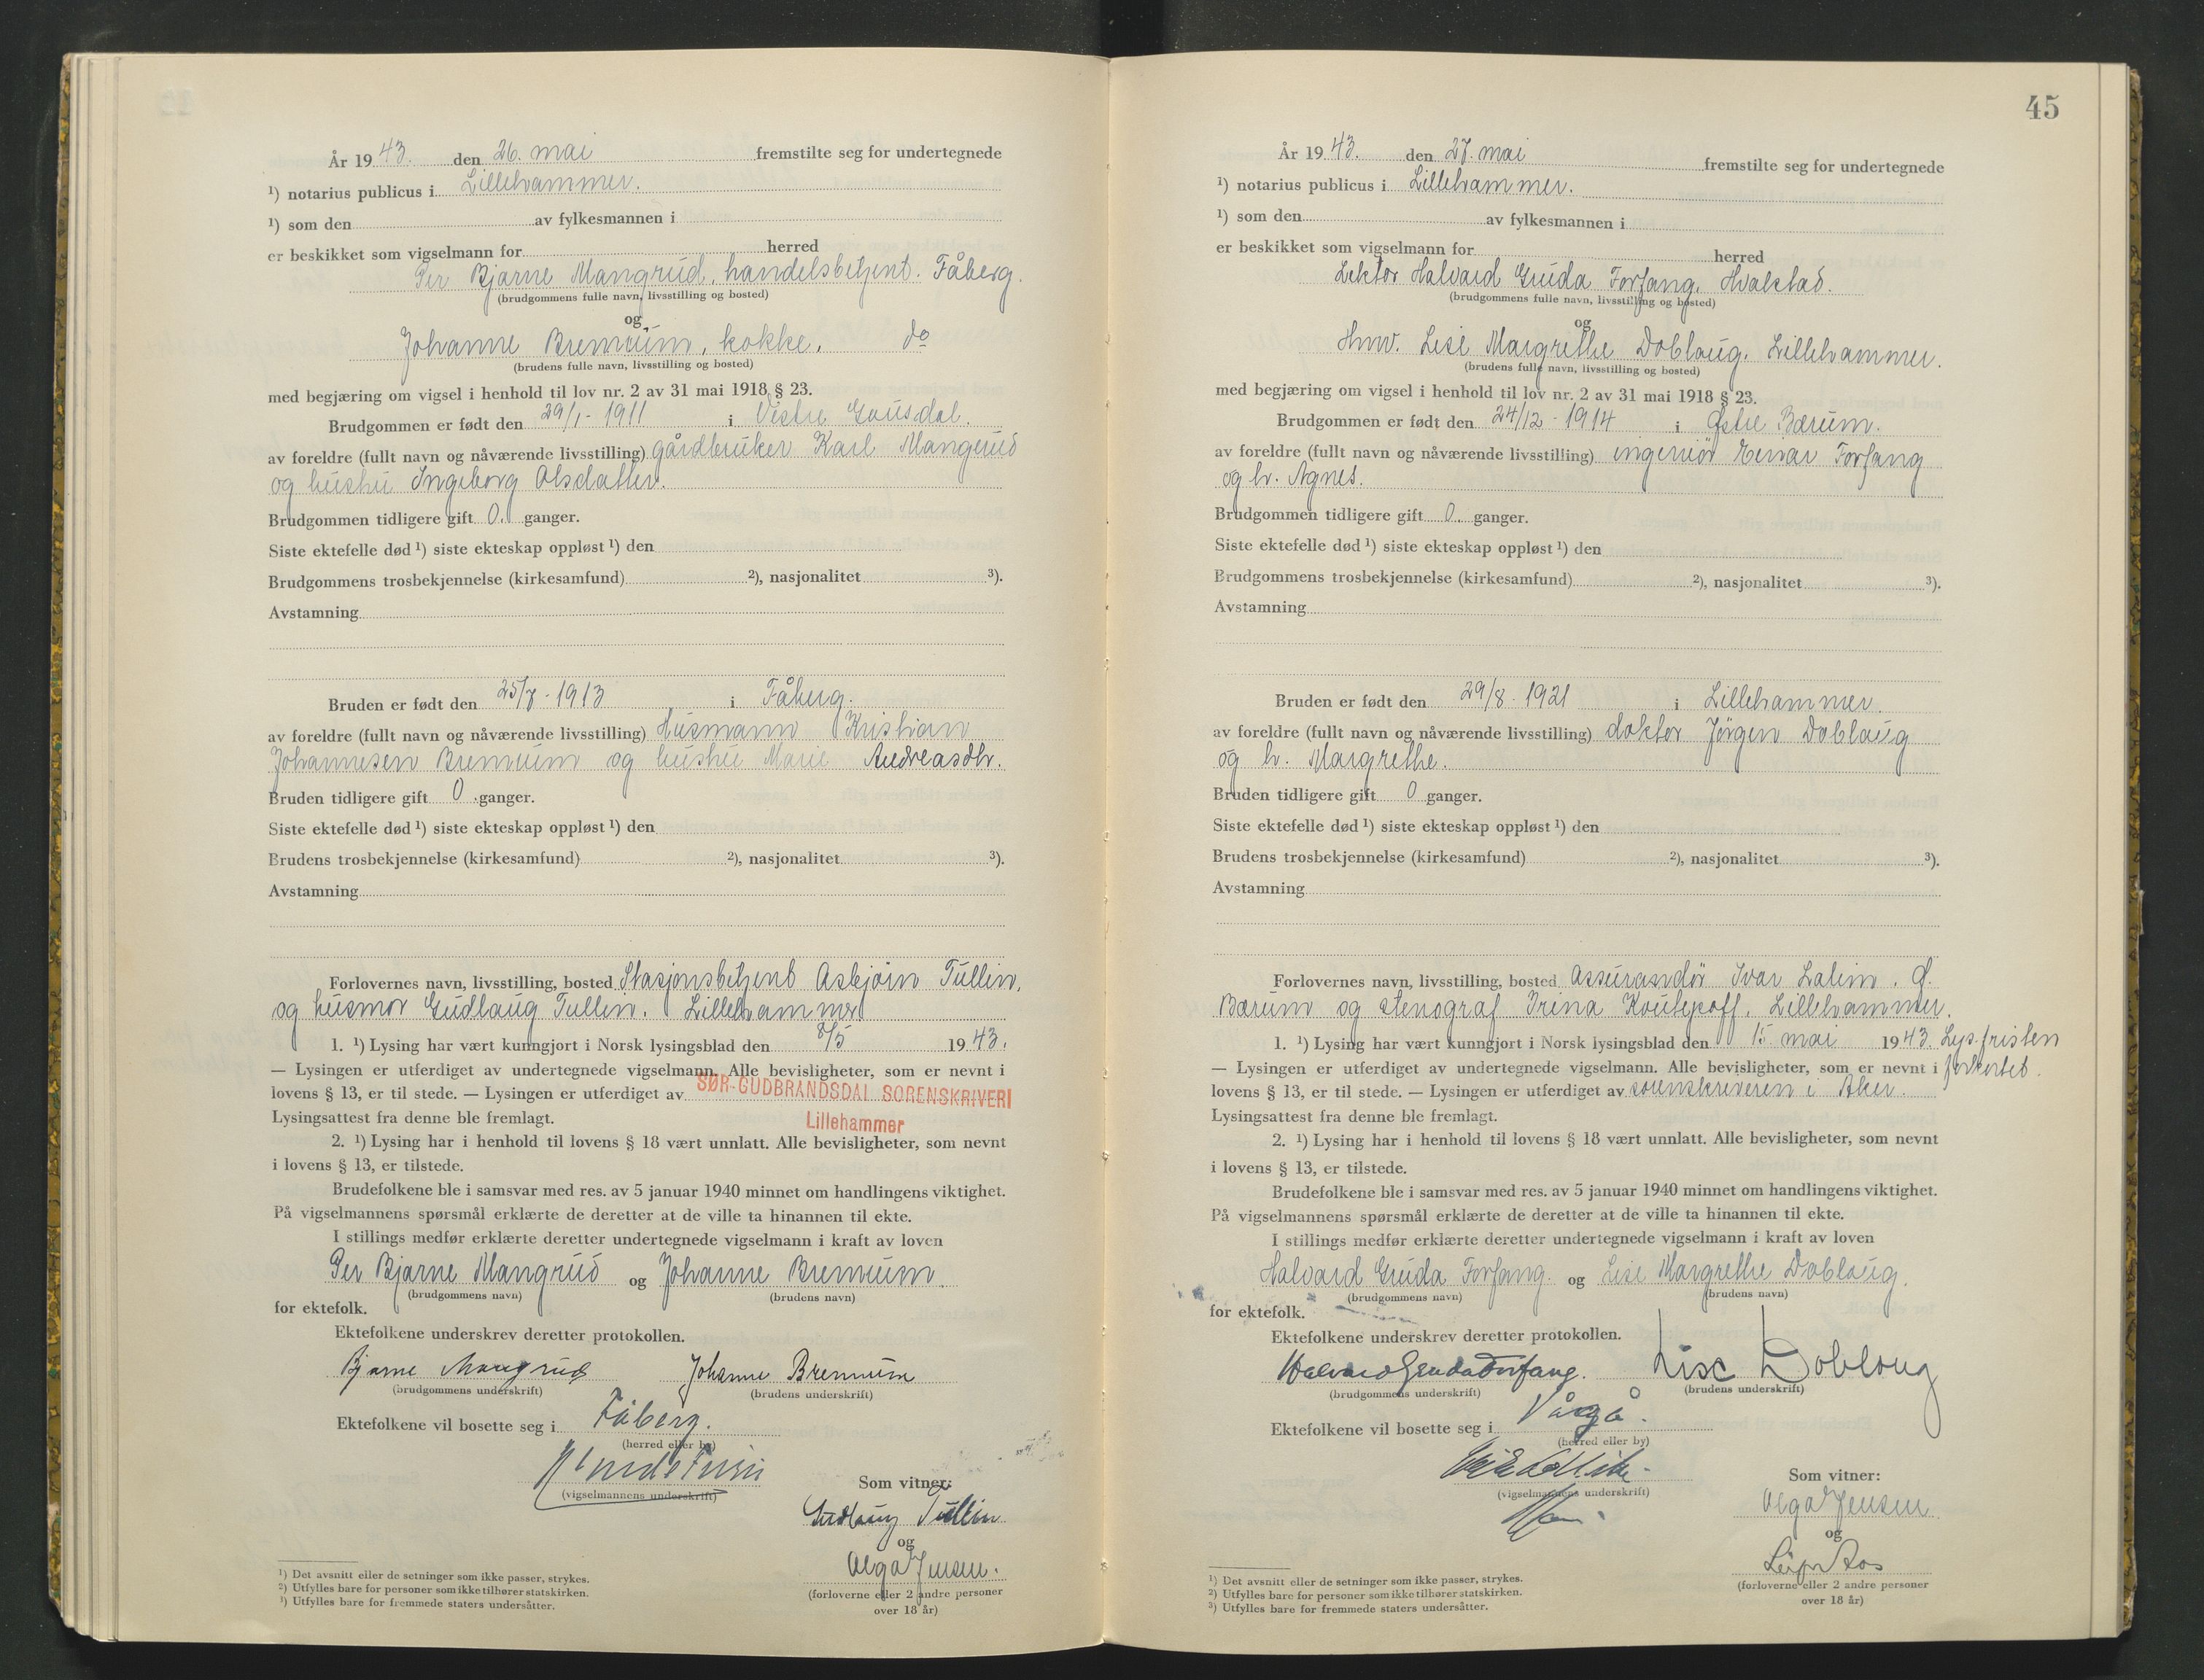 År 19 43. den 26. mai fremstilte seg for undertegnede
¹) notarius publicus i Lillehammer.
¹) som den av fylkesmannen i
er beskikket som vigselmann for herred
Per Bjarne Mangrud, handelsbetjent. Fåberg.
(brudgommens fulle navn, livsstilling og bosted)
og
Johanne Bremnum, kokke, do
(brudens fulle navn, livsstilling og bosted)
med begjæring om vigsel i henhold til lov nr. 2 av 31 mai 1918 § 23.
Brudgommen er født den 29/1 - 1911 i Vestre Gausdal.
av foreldre (fullt navn og nåværende livsstilling) gårdbruker Karl Mangerud
og hustru Ingeborg Olsdatter.
Brudgommen tidligere gift 0. ganger.
Siste ektefelle død ¹) siste ekteskap oppløst ¹) den
Brudgommens trosbekjennelse (kirkesamfund) ²), nasjonalitet ³).
Avstamning
Bruden er født den 25/7 - 1913 i Fåberg.
av foreldre (fullt navn og nåværende livsstilling) Husmann Kristian
Johannesen Bremnum og hustru Marie Andreasdtr.
Bruden tidligere gift 0 ganger.
Siste ektefelle død ¹) siste ekteskap oppløst ¹) den
Brudens trosbekjennelse (kirkesamfund) ²), nasjonalitet ³).
Avstamning
Forlovernes navn, livsstilling, bosted Stasjonsbetjent Asbjørn Tullin,
og husmor Gudlaug Tullin. Lillehammer
1. ¹) Lysing har vært kunngjort i Norsk lysingsblad den 8/5 19 43.
— Lysingen er utferdiget av undertegnede vigselmann. Alle bevisligheter, som er nevnt i
lovens § 13, er til stede. — Lysingen er utferdiget av SØR-GUDBRANDSDAL SORENSKRIVERI
Lillehammer
Lysingsattest fra denne ble fremlagt.
2. ¹) Lysing har i henhold til lovens § 18 vært unnlatt. Alle bevisligheter, som nevnt
i lovens § 13, er tilstede.
Brudefolkene ble i samsvar med res. av 5 januar 1940 minnet om handlingens viktighet.
På vigselmannens spørsmål erklærte de deretter at de ville ta hinannen til ekte.
I stillings medfør erklærte deretter undertegnede vigselmann i kraft av loven
Per Bjarne Mangrud og Johanne Bremnum
(brudgommens navn) (brudens navn)
for ektefolk.
Ektefolkene underskrev deretter protokollen.
Bjarne Mangrud Johanne Bremnum
(brudgommens underskrift) (brudens underskrift)
Ektefolkene vil bosette seg i Fåberg.
(herred eller by)
(vigselmannens underskrift)
Som vitner:
Gudlaug Tullin
og
Olga Jensen.
(forloverne eller 2 andre personer
over 18 år)
¹) Det avsnitt eller de setninger som ikke passer, strykes.
²) Utfylles bare for personer som ikke tilhører statskirken.
³) Utfylles bare for fremmede staters undersåtter.
45
År 19 43. den 27. mai fremstilte seg for undertegnede
¹) notarius publicus i Lillehammer.
¹) som den av fylkesmannen i
er beskikket som vigselmann for herred
Lektor Halvard Gruda Forfang. Hvalstad.
(brudgommens fulle navn, livsstilling og bosted)
og
Hmv. Lise Margrethe Doblaug. Lillehammer.
(brudens fulle navn, livsstilling og bosted)
med begjæring om vigsel i henhold til lov nr. 2 av 31 mai 1918 § 23.
Brudgommen er født den 24/12 - 1914 i Østre Bærum.
av foreldre (fullt navn og nåværende livsstilling) ingeniør Einar Forfang
og h. Agnes.
Brudgommen tidligere gift 0. ganger.
Siste ektefelle død ¹) siste ekteskap oppløst ¹) den
Brudgommens trosbekjennelse (kirkesamfund) ²), nasjonalitet ³).
Avstamning
Bruden er født den 29/8 - 1921 i Lillehammer.
av foreldre (fullt navn og nåværende livsstilling) doktor Jörgen Doblaug
og h. Margrethe.
Bruden tidligere gift 0 ganger.
Siste ektefelle død ¹) siste ekteskap oppløst ¹) den
Brudens trosbekjennelse (kirkesamfund) ²), nasjonalitet ³).
Avstamning
Forlovernes navn, livsstilling, bosted Assurandør Ivar Lalim. Ø.
Bærum og stenograf Irina Koutepoff, Lillehammer.
1. ¹) Lysing har vært kunngjort i Norsk lysingsblad den 15. mai 19 43. Lys.fristen
— Lysingen er utferdiget av undertegnede vigselmann. Alle bevisligheter, som er nevnt i forkortet.
lovens § 13, er til stede. — Lysingen er utferdiget av sorenskriveren i Aker.
Lysingsattest fra denne ble fremlagt.
2. ¹) Lysing har i henhold til lovens § 18 vært unnlatt. Alle bevisligheter, som nevnt
i lovens § 13, er tilstede.
Brudefolkene ble i samsvar med res. av 5 januar 1940 minnet om handlingens viktighet.
På vigselmannens spørsmål erklærte de deretter at de ville ta hinannen til ekte.
I stillings medfør erklærte deretter undertegnede vigselmann i kraft av loven
Halvard Gruda Forfang. og Lise Margrethe Doblaug.
(brudgommens navn) (brudens navn)
for ektefolk.
Ektefolkene underskrev deretter protokollen.
Halvard Gruda Forfang. Lise Dobloug
(brudgommens underskrift) (brudens underskrift)
Ektefolkene vil bosette seg i Vågå.
(herred eller by)
(vigselmannens underskrift)
Som vitner:
Olga Jensen
og
(forloverne eller 2 andre personer
over 18 år)
¹) Det avsnitt eller de setninger som ikke passer, strykes.
²) Utfylles bare for personer som ikke tilhører statskirken.
³) Utfylles bare for fremmede staters undersåtter.